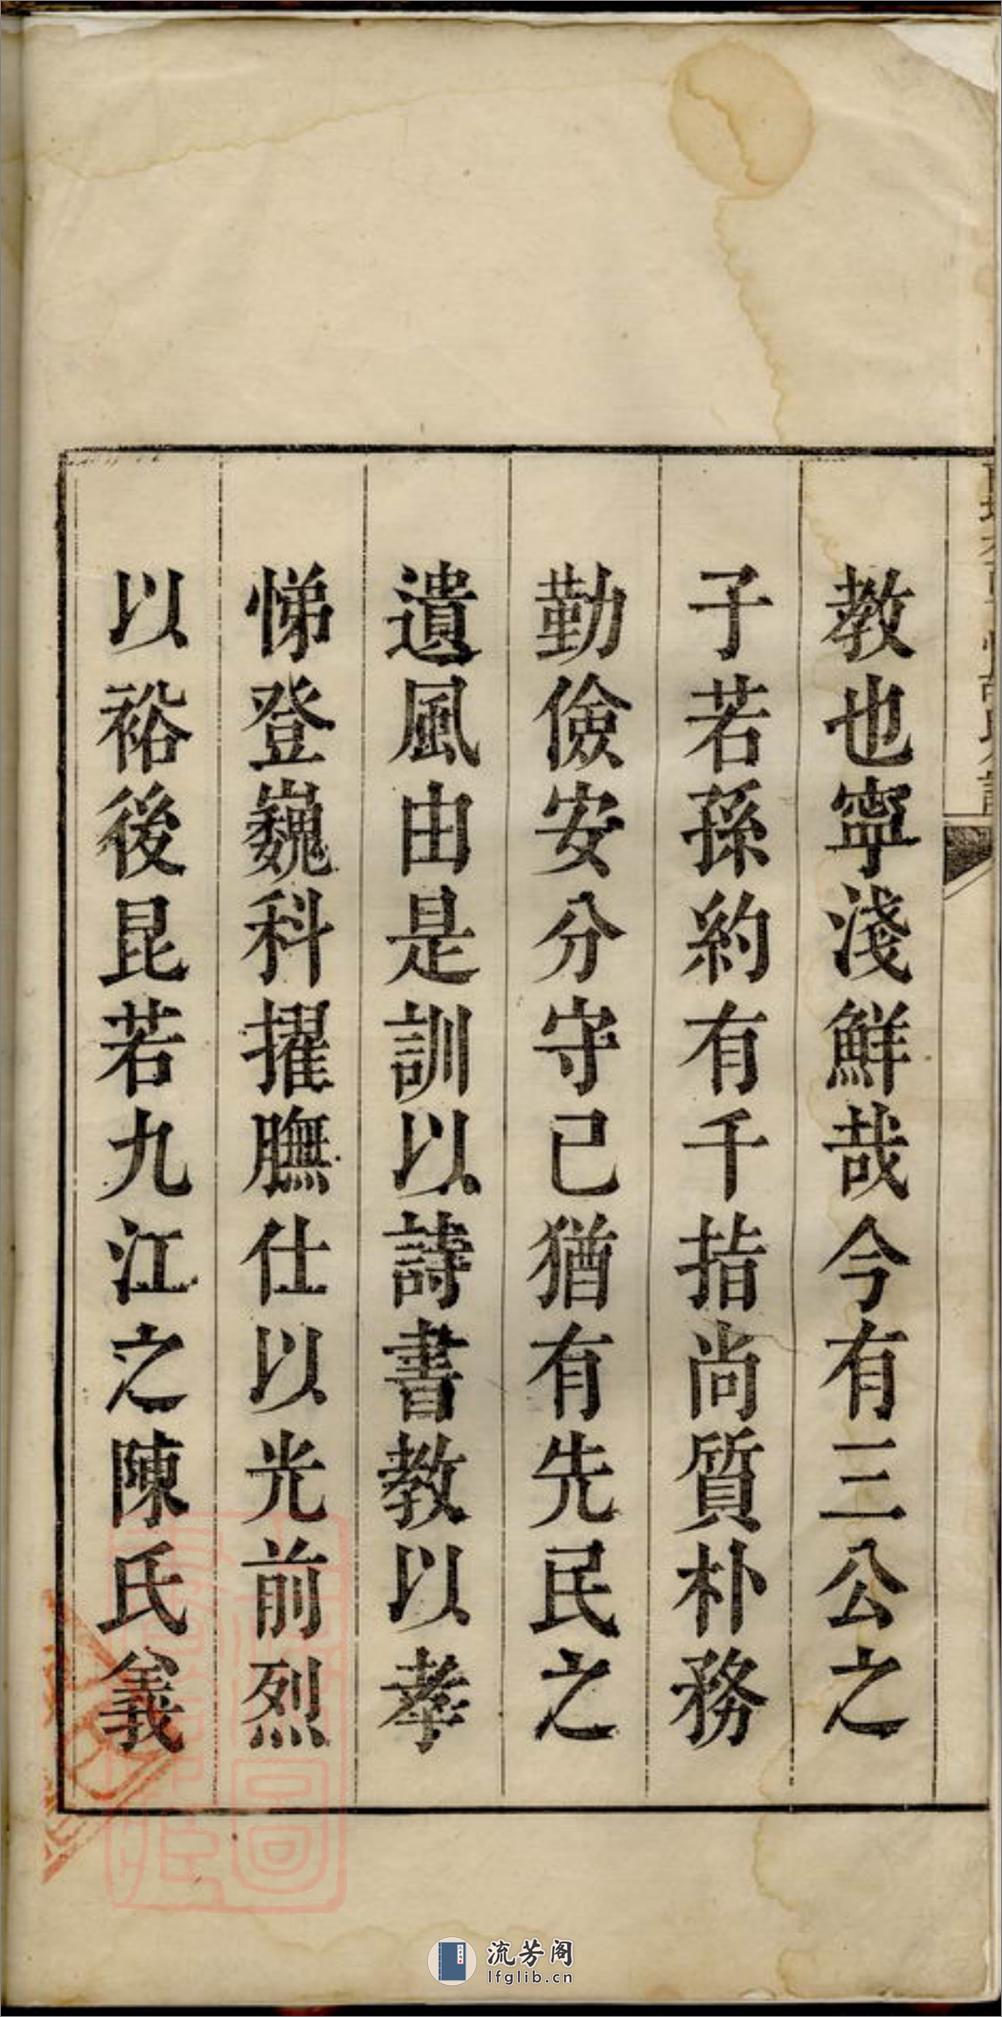 教也寧淺鮮哉今有三公之
子若孫約有千指尚質朴務
勤儉安分守己猶有先民之
遺風由是訓以詩書教以孝
悌登巍科擢膴仕以光前烈
以裕後昆若九江之陳氏義
流芳阁
lfglib.cn